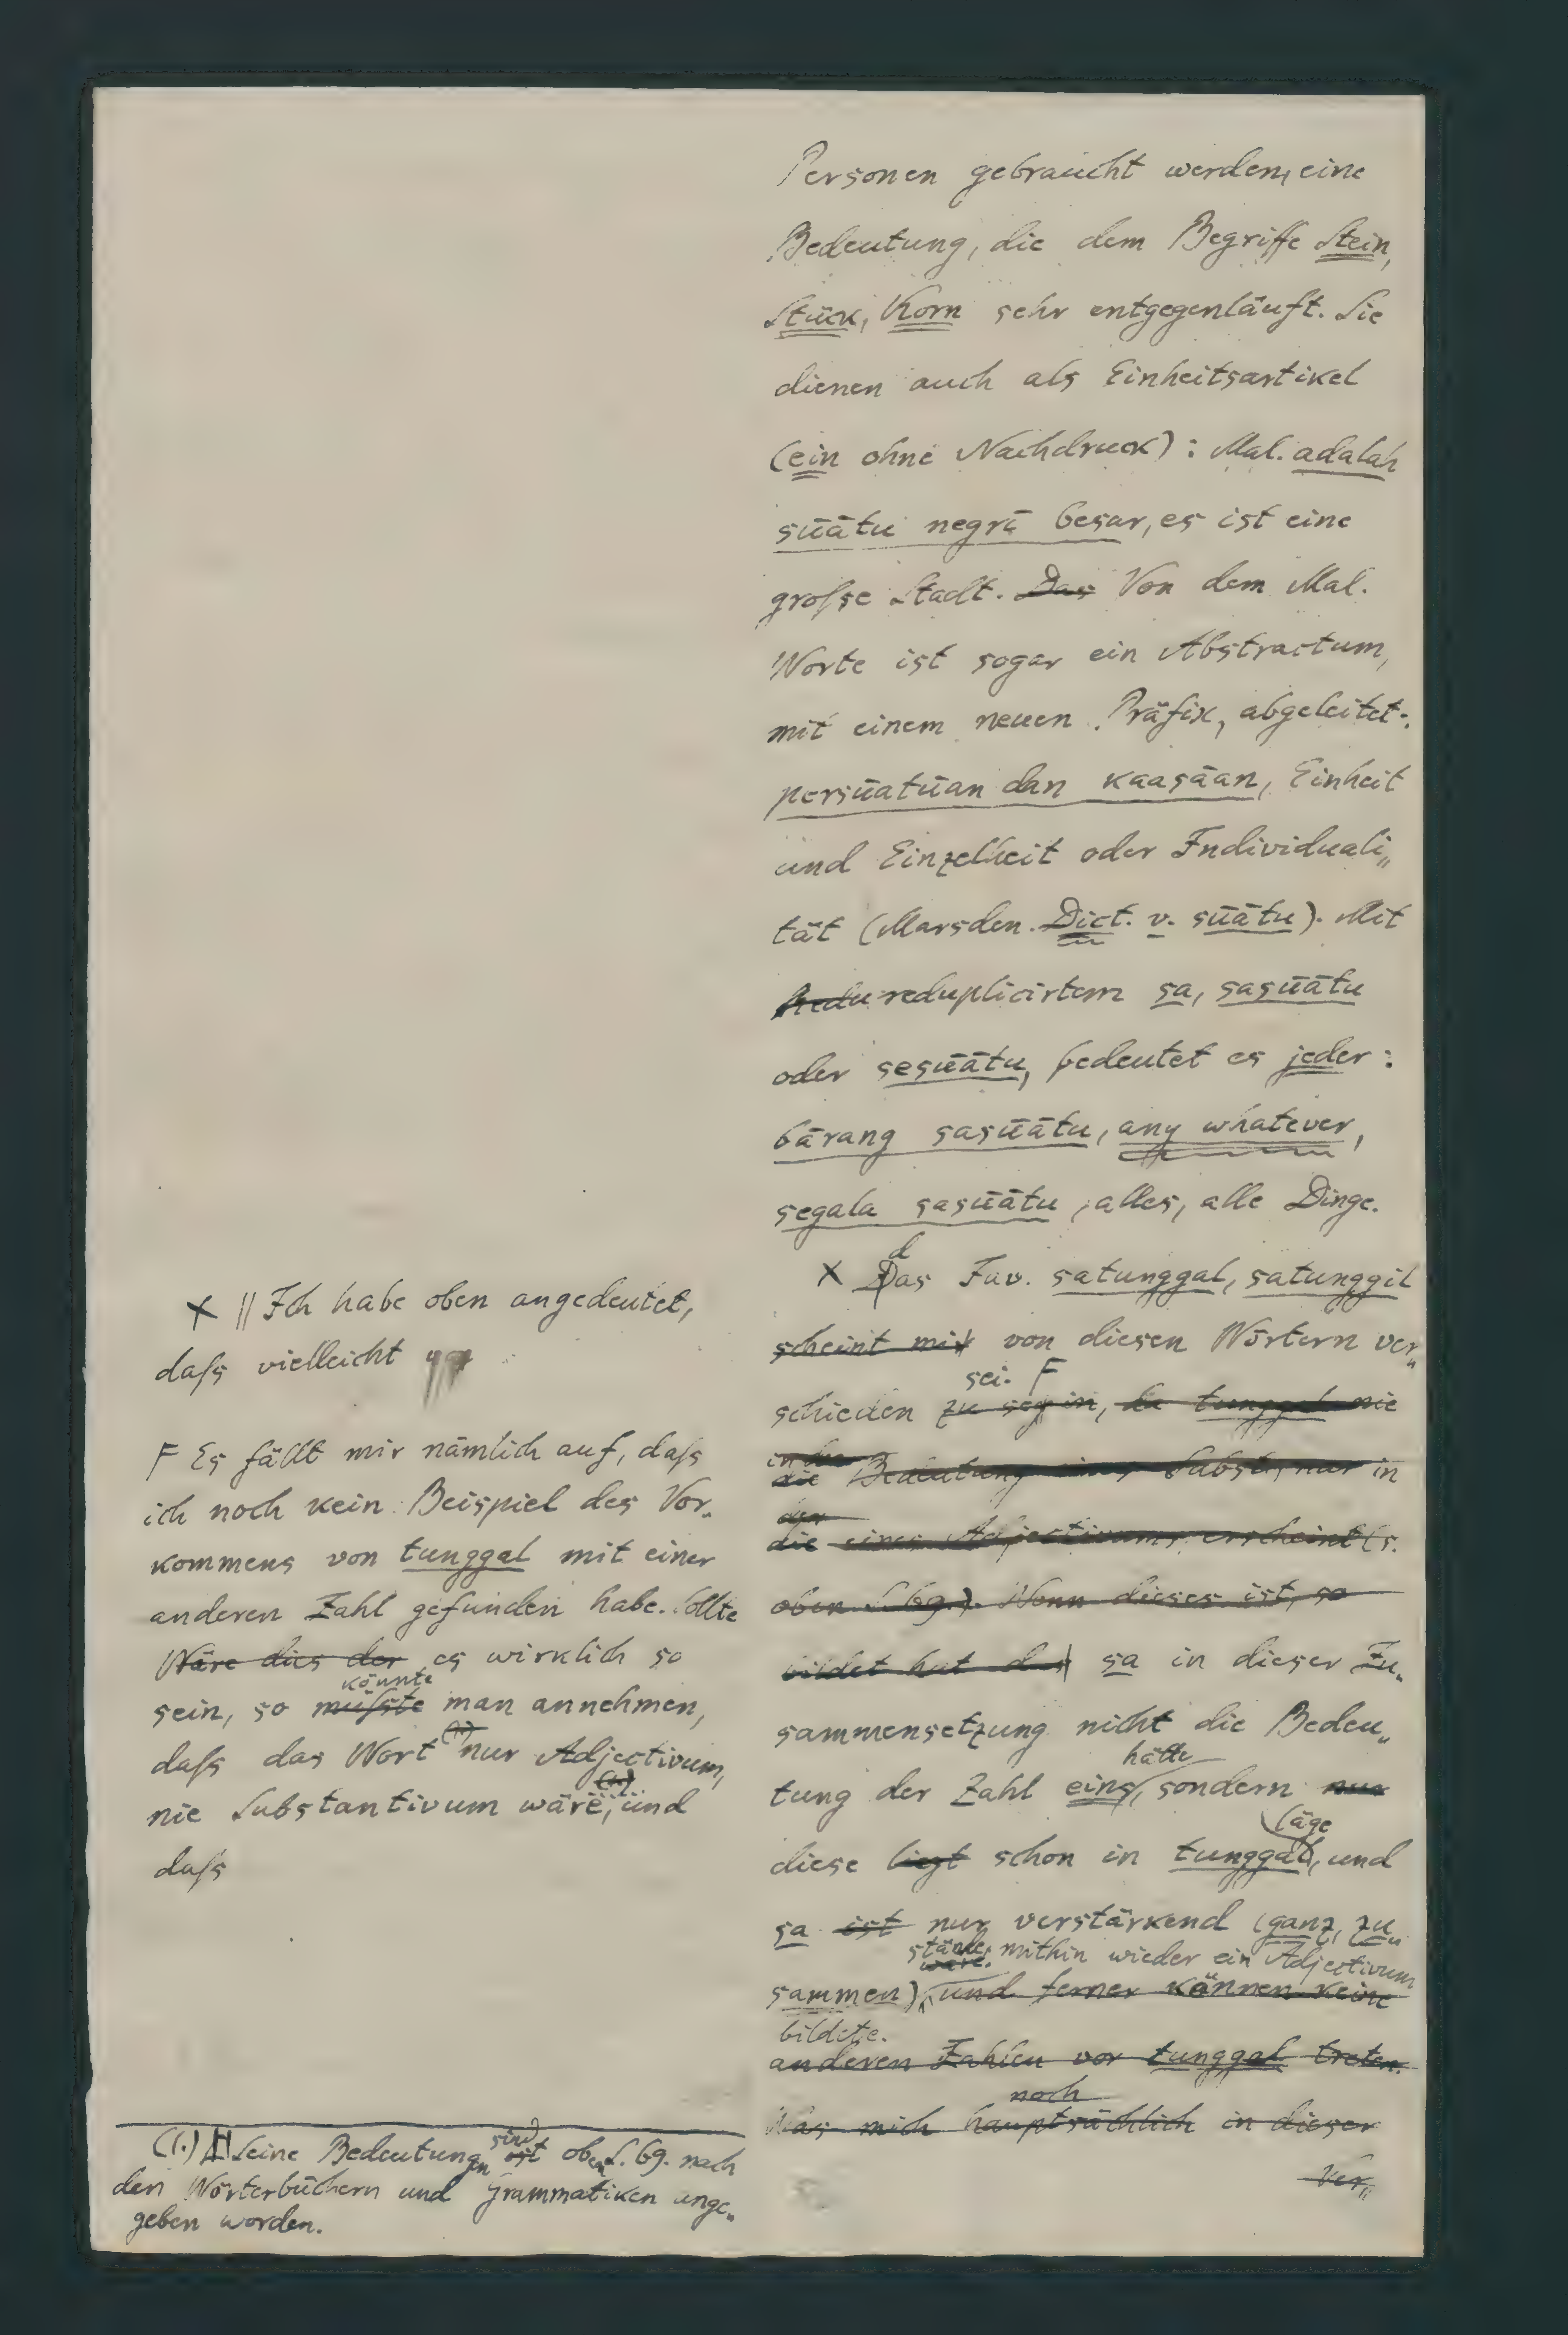 Personen gebraucht werden, eine
Bedeutung, die dem Begriffe Stein,
Stück, Korn sehr entgegenläuft. Sie
dienen auch als Einheitsartikel
(ein ohne Nachdruck): Mal. adalah
sūātu negrī besar, es ist eine
groſse Stadt. Das Von dem Mal.
Worte ist sogar ein Abstractum,
mit einem neuen Präfix, abgeleitet:
persūatūan dan kaasāan, Einheit
und Einzelheit oder Individuali„
tät (Marsden. Dict. v. sūātu). Mit
Redu reduplicirtem sa, sasūātu
oder sesūātu, bedeutet es jeder:
bārang sasūātu, any whatever,
segala sasūātu, alles, alle Dinge.
d
X Das Jav. satunggal, satunggil
scheint mir von diesen Wörtern ver„
sei. F
schieden zu seyn, da tunggal nie
in der
die Bedeutung eines Subst., nur in
der
die eines Adjectivums erscheint (s.
oben S. 69.). Wenn dieses ist, so
bildet hat das sa in dieser Zu„
sammensetzung nicht die Bedeu„
hätte
tung der Zahl eins, sondern nur
läge
diese liegt schon in tunggal, und
sa ist nur verstärkend (ganz, zu„
stände, mithin wieder ein Adjectivum
wäre.
sammen), und ferner können keine
bildete.
anderen Zahlen vor tunggal treten.
noch
Was mich hauptsächlich in dieser
Ver„
X || Ich habe oben angedeutet,
daſs vielleicht
F Es fällt mir nämlich auf, daſs
ich noch kein Beispiel des Vor„
kommens von tunggal mit einer
anderen Zahl gefunden habe. Sollte
Wäre dies der es wirklich so
könnte
sein, so müſste man annehmen,
(1)
daſs das Wort nur Adjectivum,
(1)
nie Substantivum wäre, und
daſs
(1.) Seine Bedeutungen sind ist oben S. 69. nach
den Wörterbüchern und Grammatiken ange„
geben worden.